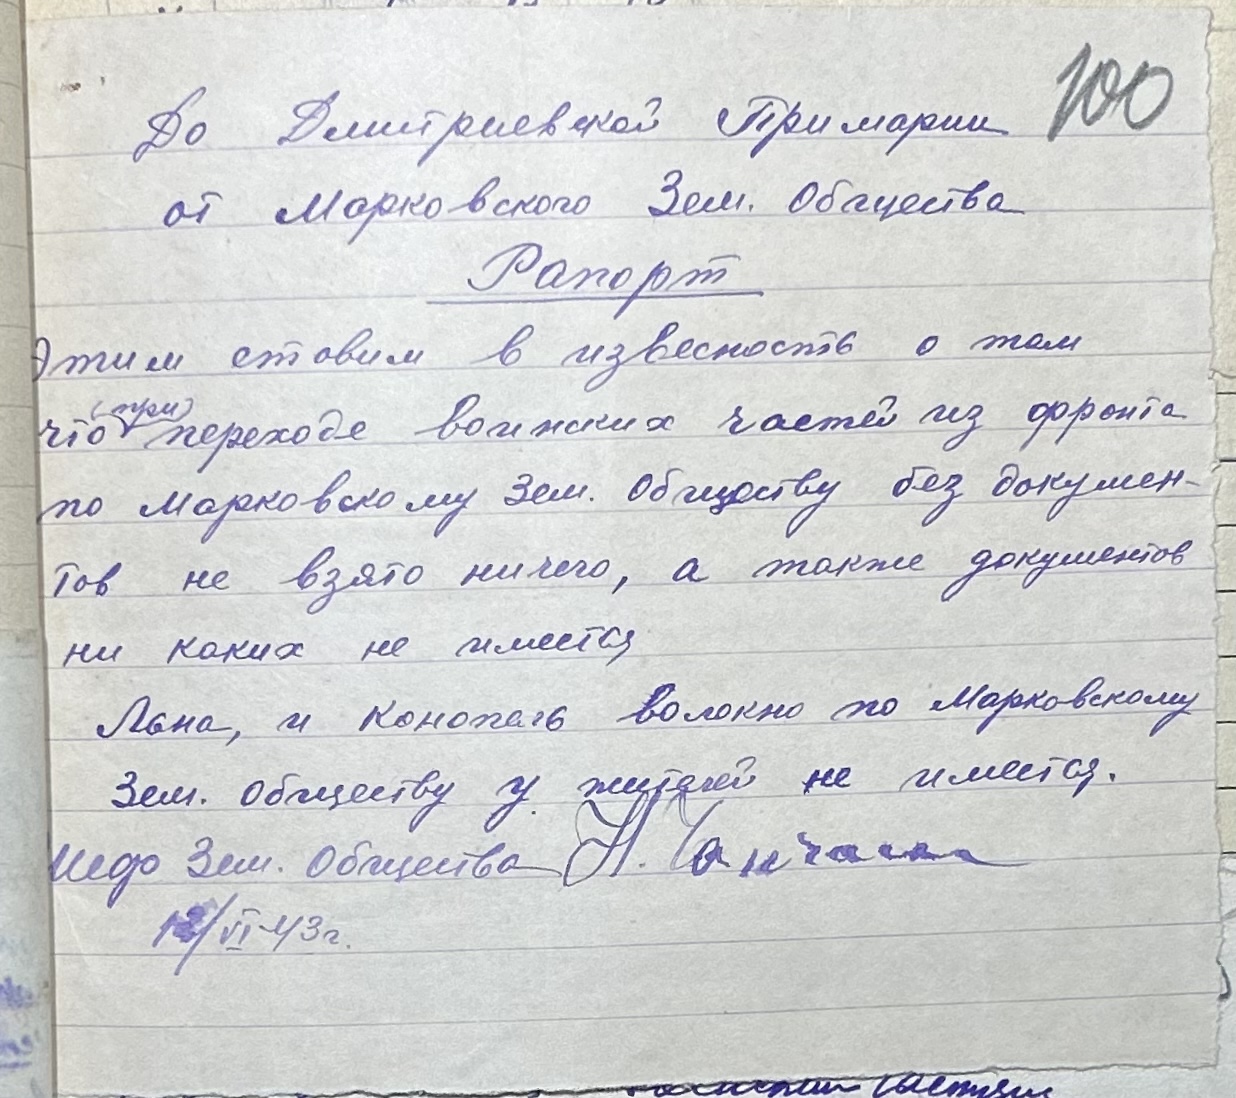 100
До Дмитриевской Примарии
от Марковского Зем. Общества
Рапорт
Этим ставим в извесность о том
что (при) переходе воинских частей из фронта
по Марковскому Зем. Обществу без докумен-
тов не взято ничего, а также документов
ни каких не имеется
Льна, и конопель волокно по Марковскому
Зем. обществу у жителей не имеется.
Шеф Зем. Общества Н.
12/VI-43г.